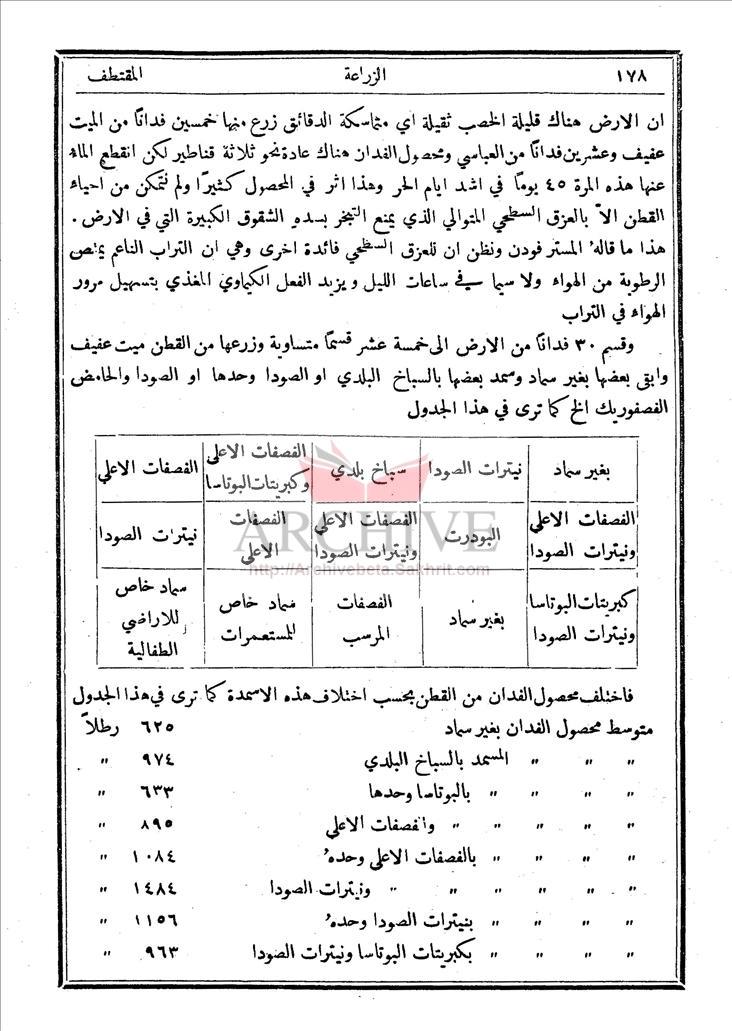 ١٧٨ الزراعة المقتطف
ان الارض هناك قليلة الخصب ثقيلة اي متماسكة الدقائق زرع منها خمسين فدانًا من الميت
عفيف وعشرين فدانًا من العباسي ومحصول الفدان هناك عادة نحو ثلاثة قناطير لكن انقطع الماء
عنها هذه المرة ٤٥ يومًا في اشد ايام الحر وهذا اثر في المحصول كثيرًا ولم نتمكن من احياء
القطن الاّ بالعزق السطحي المتوالي الذي يمنع التبخر بسده الشقوق الكبيرة التي في الارض .
هذا ما قالهُ المستر فودن ونظن ان للعزق السطحي فائدة اخرى وهي ان التراب الناعم يمتص
الرطوبة من الهواء ولا سيما في ساعات الليل ويزيد الفعل الكيماوي المغذي بتسهيل مرور
الهواء في التراب
وقسم ٣٠ فدانًا من الارض الى خمسة عشر قسمًا متساوية وزرعها من القطن ميت عفيف
وابقى بعضها بغير سماد وسمد بعضها بالسباخ البلدي او الصودا وحدها او الصودا والحامض
الفصفوريك الخ كما ترى في هذا الجدول
بغير سماد نيترات الصودا سباخ بلدي الفصفات الاعلى وكبريتات البوتاسا الفصفات الاعلي
الفصفات الاعلي ونيترات الصودا البودرت الفصفات الاعلي ونيترات الصودا الفصفات الاعلي نيترات الصودا
كبريتات البوتاسا ونيترات الصودا بغير سماد الفصفات المرسب سماد خاص للمستعمرات سماد خاص للاراضي الطفالية
ARCHIVE
http://Archivebeta.Sakhrit.com
فاختلف محصول الفدان من القطن بحسب اختلاف هذه الاسمدة كما ترى في هذا الجدول
متوسط محصول الفدان بغير سماد ٦٢٥ رطلاً
" " " " المسمد بالسباخ البلدي ٩٧٤ "
" " " " " بالبوتاسا وحدها ٦٣٣ "
" " " " " " والفصفات الاعلي ٨٩٥ "
" " " " " بالفصفات الاعلى وحدهُ ١٠٨٤ "
" " " " " " " ونيترات الصودا ١٤٨٤ "
" " " " " بنيترات الصودا وحدهُ ١١٥٦ "
" " " " " بكبريتات البوتاسا ونيترات الصودا ٩٦٣ "